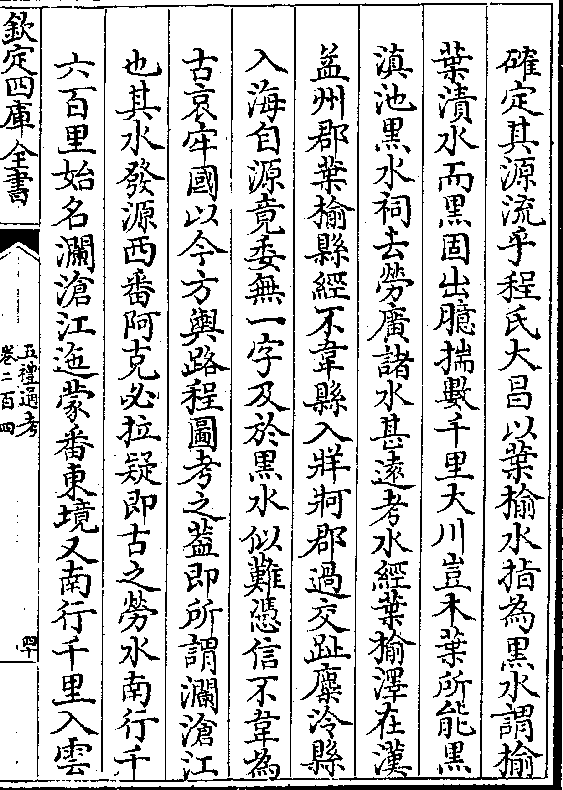 確定其源流乎程氏大昌以葉榆水指為黒水謂榆
葉漬水而黒固出臆揣數千里大川豈木葉所能黒
滇池黒水祠去勞廣諸水甚遠考水經葉榆澤在漢
益州郡葉榆縣經不韋縣入牂牁郡過交趾麊泠縣
入海自源竟委無一字及於黒水似難憑信不韋為
古哀牢國以今方輿路程圖考之葢即所謂瀾滄江
也其水發源西番阿克必拉疑即古之勞水南行千
六百里始名瀾滄江迤蒙番東境又南行千里入雲
欽定四庫全書
五禮通考
卷二百四